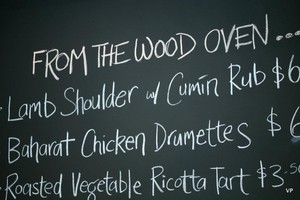 FROM THE WOOD OVEN...
Lamb Shoulder w/ Cumin Rub $6
Baharat Chicken Drumettes $6
Roasted Vegetable Ricotta Tart $3.50
VP